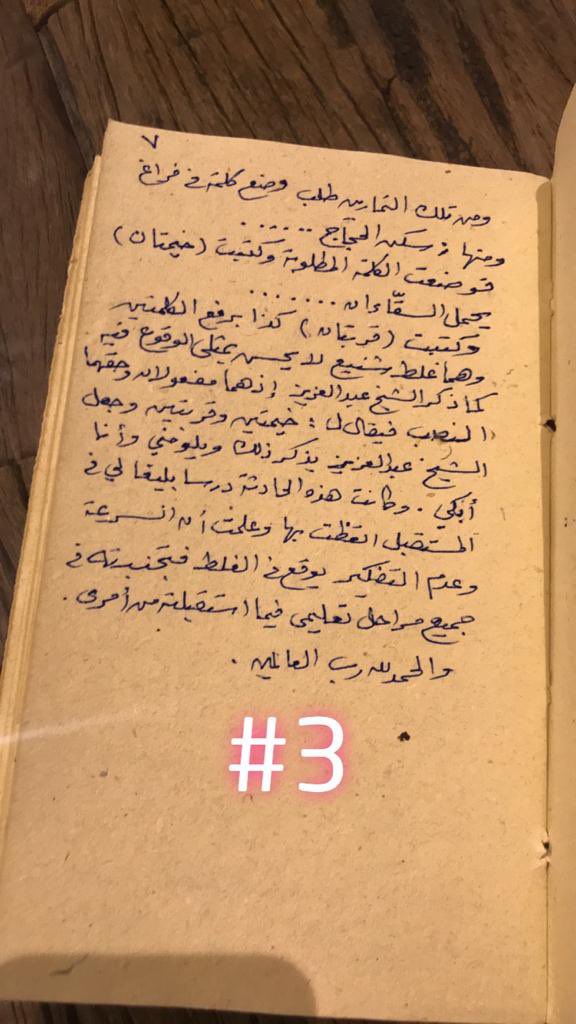 ٧
ومن تلك التمارين طلب وضع كلمة في فراغ
ومنها : سكن الحجّاج ......
فوضعت الكلمة المطلوبة وكتبت (خيمتان)
يحمل السقّاءان .......
وكتبت (قربتان) كذا برفع الكلمتين
وهما غلط شنيع لا يحسن بمثلي الوقوع فيه
كما ذكر الشيخ عبدالعزيز إذ هما مفعولان وحقهما
النصب فيقال : خيمتين وقربتين وجعل
الشيخ عبدالعزيز يذكر ذلك ويلومني وأنا
أبكي . وكانت هذه الحادثة درسا بليغا لي في
المستقبل اتعظت بها وعلمت أن السرعة
وعدم التفكير يوقع في الغلط فتجنبته في
جميع مراحل تعليمي فيما استقبلته من أمري .
والحمد لله رب العالمين .
#3